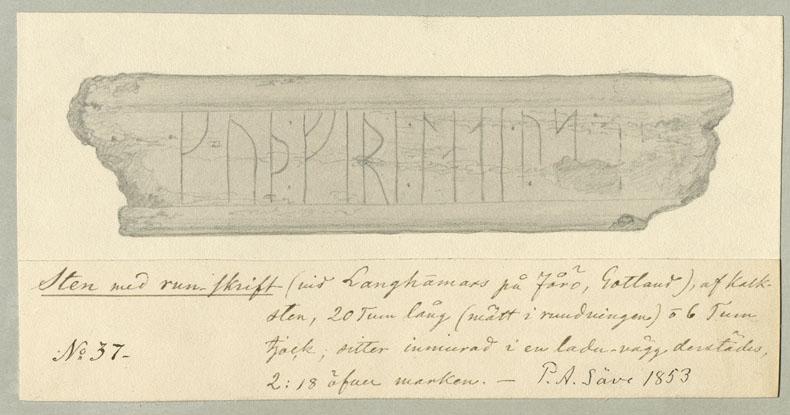 ᚴᚢᚦ᛬ᚠᛁᚱᛁ
Sten med run-skrift (vid Langhāmars på Fårö, Gotland), af kalk-
sten, 20 Tum lång (mätt i rundningen) o 6 Tum
No 37-
tjock; sitter inmurad i en ladu-vägg derstädes,
2:18 öfver marken. — P. A. Säve 1853